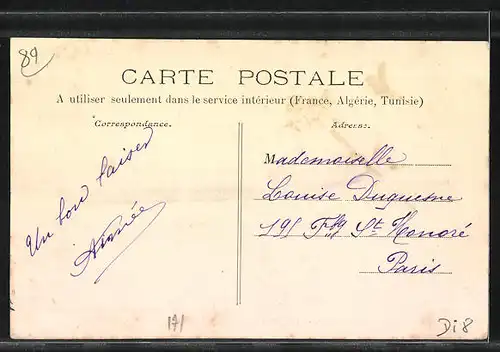 89
CARTE POSTALE
A utiliser seulement dans le service intérieur (France, Algérie, Tunisie)
Correspondance.
Adresse.
Un bon baiser
Aimée
Mademoiselle
Louise Duquesne
191 Fbg St Honoré
Paris
171
Di8